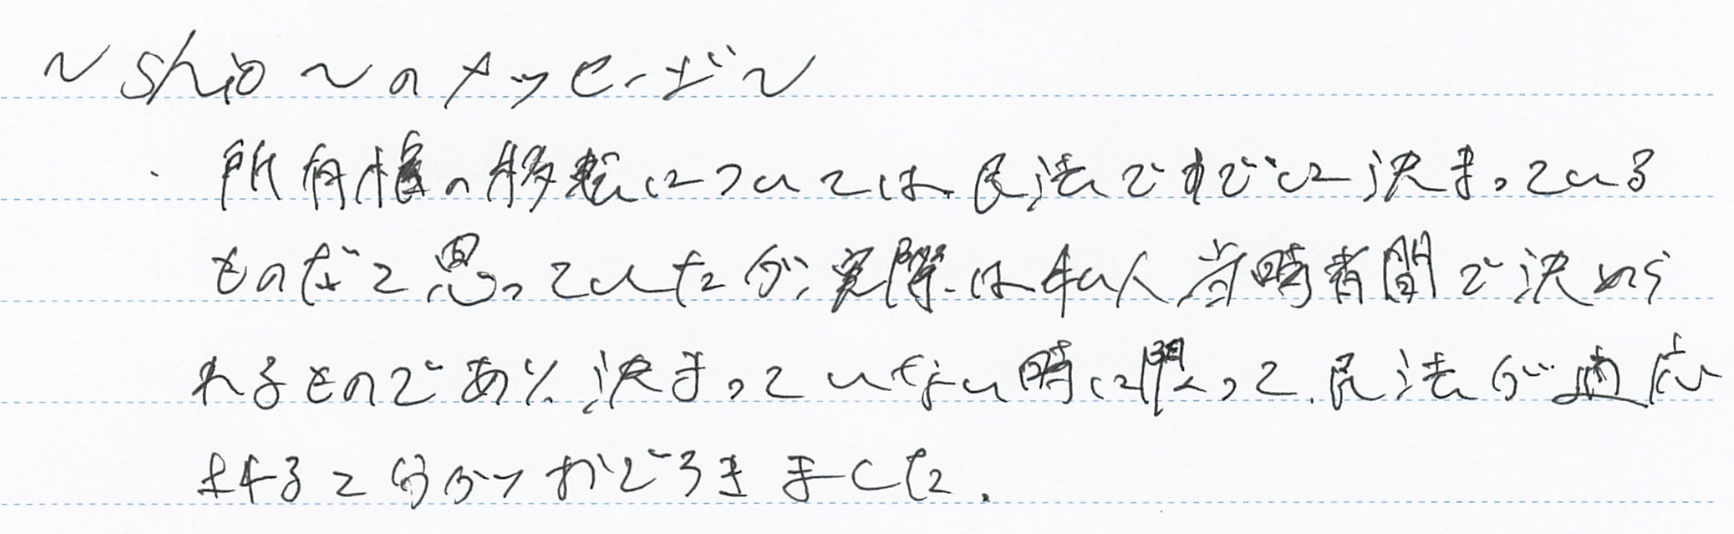 ~ shio ~のメッセージ~
・所有権の移転については、民法ですでに決まっている
ものだと思っていたが、実際は私人当時者間で決めら
れるものであり、決まっていない時に限って、民法が適応
されると分かっておどろきました。